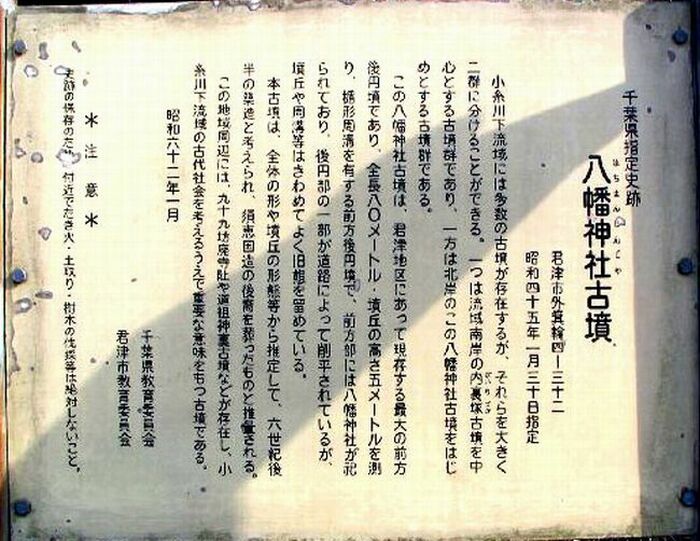 千葉県指定史跡
八幡神社古墳
はちまんじんじゃ
君津市外箕輪四ー三十二
昭和四十五年一月三十日指定
小糸川下流域には多数の古墳が存在するが、それらを大きく
二群に分けることができる。一つは流域南岸の内裏塚古墳を中
心とする古墳群であり、一方は北岸のこの八幡神社古墳をはじ
めとする古墳群である。
この八幡神社古墳は、君津地区にあって現存する最大の前方
後円墳であり、全長八〇メートル・墳丘の高さ五メートルを測
り、楯形周溝を有する前方後円墳で、前方部には八幡神社が祀
られており、後円部の一部が道路によって削平されているが、
墳丘や周溝等はきわめてよく旧態を留めている。
本古墳は、全体の形や墳丘の形態等から推定して、六世紀後
半の築造と考えられ、須恵国造の後裔を葬ったものと推量される。
この地域周辺には、九十九坊廃寺阯や道祖神裏古墳などが存在し、小
糸川下流域の古代社会を考えるうえで重要な意味をもつ古墳である。
昭和六十二年一月
千葉県教育委員会
君津市教育委員会
＊注意＊
史跡の保存のため、付近でたき火・土取り・樹木の伐採等は絶対しないこと。